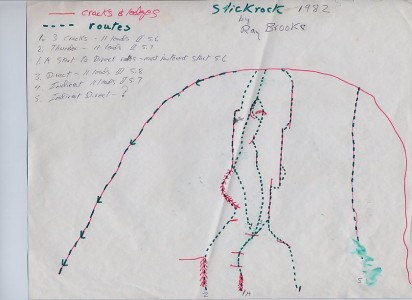 cracks & ledges
routes
Slickrock 1982
by
Ray Brooks
1. 3 Cracks - 11 leads II 5.6
2. Thunder - 11 leads II 5.7
1A start to Direct - most difficult start 5.6
3. Direct - 11 leads III 5.8
4. Indirect 11 leads II 5.7
5. Indirect Direct - ?
2
1A
1
5